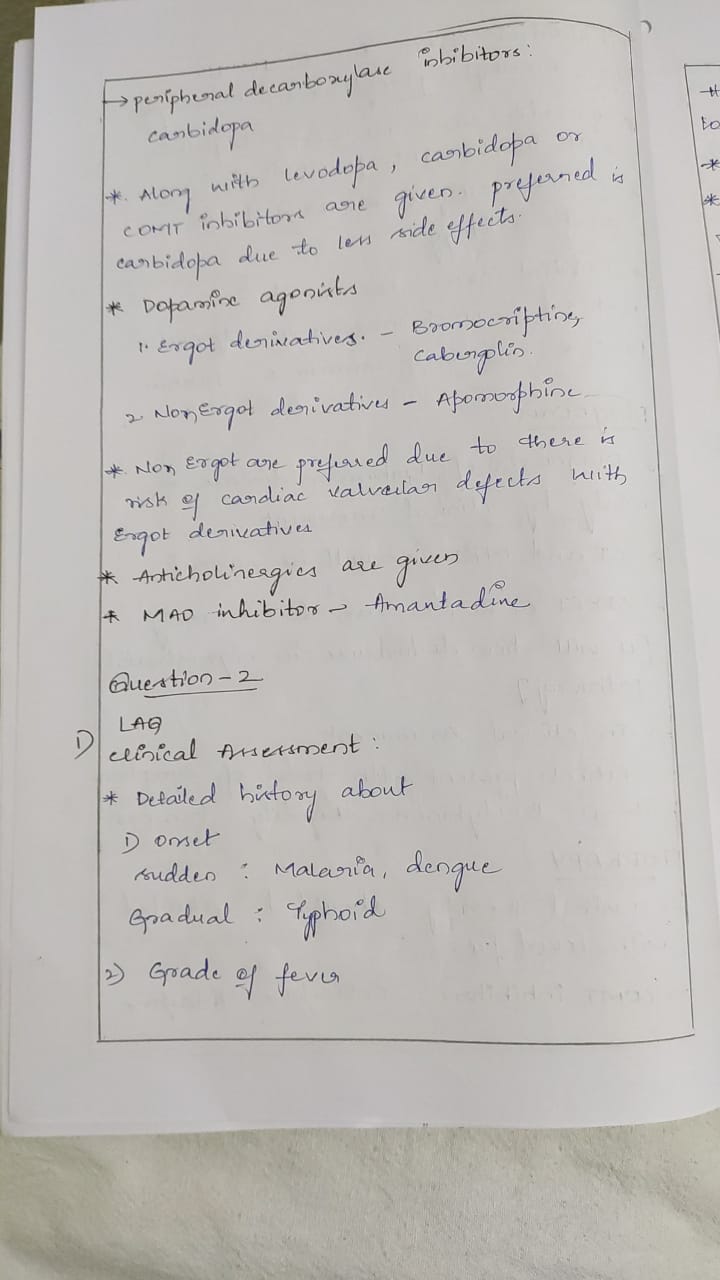 → peripheral decarboxylase inhibitors:
carbidopa
* Along with levodopa, carbidopa or
COMT inhibitors are given. preferred is
carbidopa due to less side effects.
* Dopamine agonists
1. Ergot derivatives. - Bromocriptine,
Cabergolin.
2 Non Ergot derivatives - Apomorphine
* Non Ergot are preferred due to there is
risk of cardiac valvular defects with
Ergot derivatives
* Anticholinergics are given
* MAO inhibitor → Amantadine
Question - 2
LAQ
1) clinical Assessment:
* Detailed history about
1) onset
sudden : Malaria, dengue
Gradual : Typhoid
2) Grade of fever